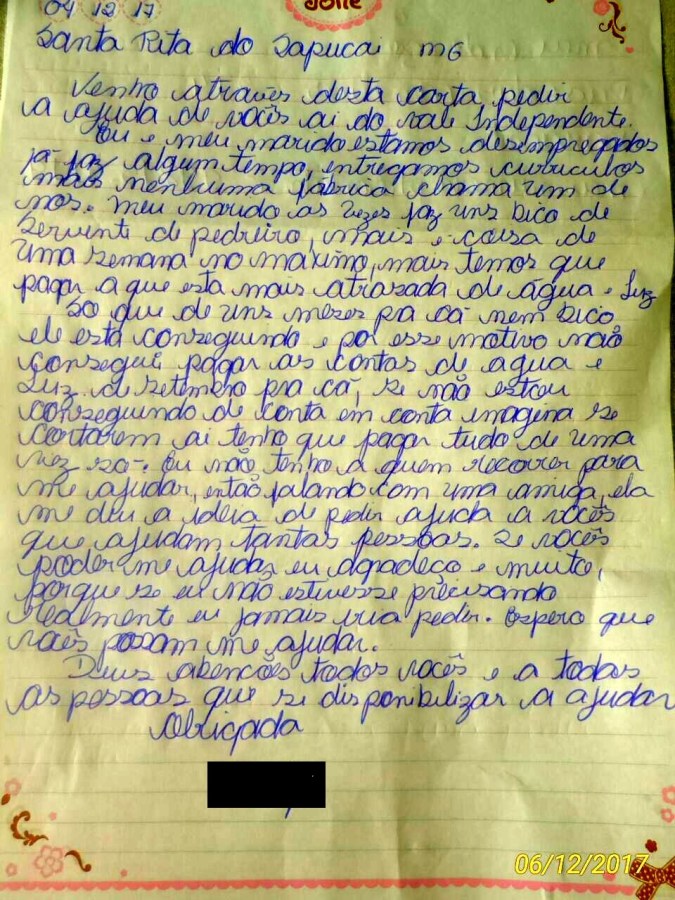 04 12 17
Jolie
Santa Rita do Sapucai MG
Venho através desta carta pedir
a ajuda de vocês ai do vale Independente.
Eu e meu marido estamos desempregados
já faz algum tempo, entregamos curriculos
mais nenhuma fábrica chama um de
nos. Meu marido as vezes faz uns bico de
servente de pedreiro, mais é coisa de
uma semana no maximo, mais temos que
pagar a que esta mais atrazada de água e Luz
So que de uns mezes pra cá nem bico
ele está conseguindo e por esse motivo não
consegui pagar as contas de agua e
Luz de setembro pra cá, se não estou
conseguindo de conta em conta imagina se
cortarem ai tenho que pagar tudo de uma
vez só. Eu não tenho a quem recorrer para
me ajudar, então falando com uma amiga, ela
me deu a ideia de pedir ajuda a vocês
que ajudam tantas pessoas. Se vocês
poder me ajudar eu agradeço e muito,
porque se eu não estivesse precisando
realmente eu jamais iria pedir. Espero que
vocês possam me ajudar.
Deus abençoes todos vocês e a todas
as pessoas que se disponibilizar a ajudar
Obrigada
06/12/2017